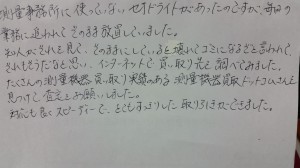 測量事務所に使っていないセオドライトがあったのですが、毎日の
業務に追われてそのまま放置していました。
知人がそれを見て、そのままにしていると壊れてゴミになるぞと言われて、
それもそうだなと思い、インターネットで買い取り先を調べてみました。
たくさんの測量機器買い取り実績のある測量機器買取ドットコムさんを
見つけて、査定をお願いしました。
対応も良くスピーディーで、とてもすっきりした取り引きができました。